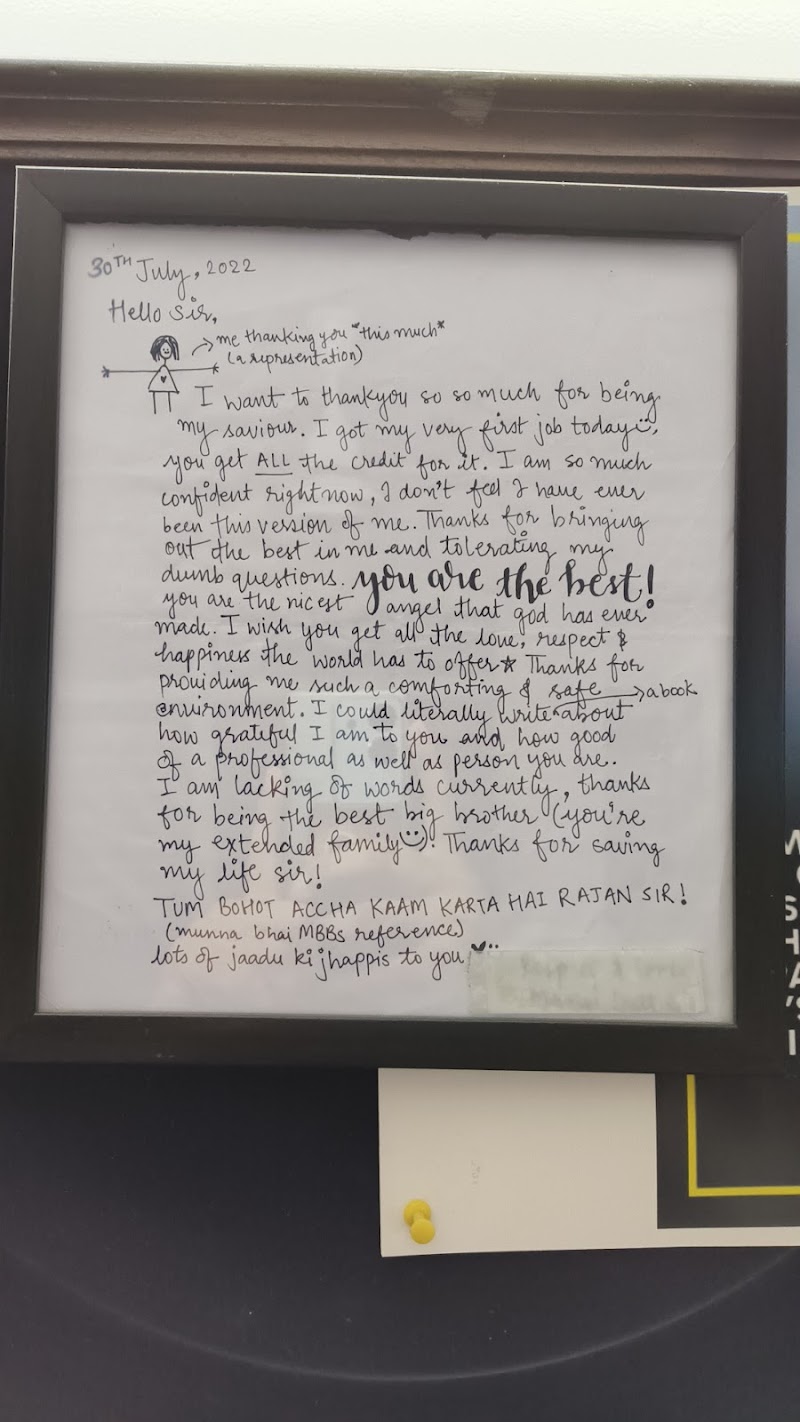 30TH July, 2022
Hello Sir,
me thanking you *this much*
(a representation)
I want to thankyou so so much for being
my saviour. I got my very first job today
you get ALL the credit for it. I am so much
confident right now, I don't feel I have ever
been this version of me. Thanks for bringing
out the best in me and tolerating my
dumb questions. you are the best!
you are the nicest angel that god has ever
made. I wish you get all the love, respect &
happiness the world has to offer★ Thanks for
providing me such a comforting & safe
a book
environment. I could literally write about
how grateful I am to you and how good
of a professional as well as person you are.
I am lacking of words currently, thanks
for being the best big brother (you're
my extended family☺)! Thanks for saving
my life sir!
TUM BOHOT ACCHA KAAM KARTA HAI RAJAN SIR!
(munna bhai MBBS reference)
lots of jaadu ki jhappis to you ♥